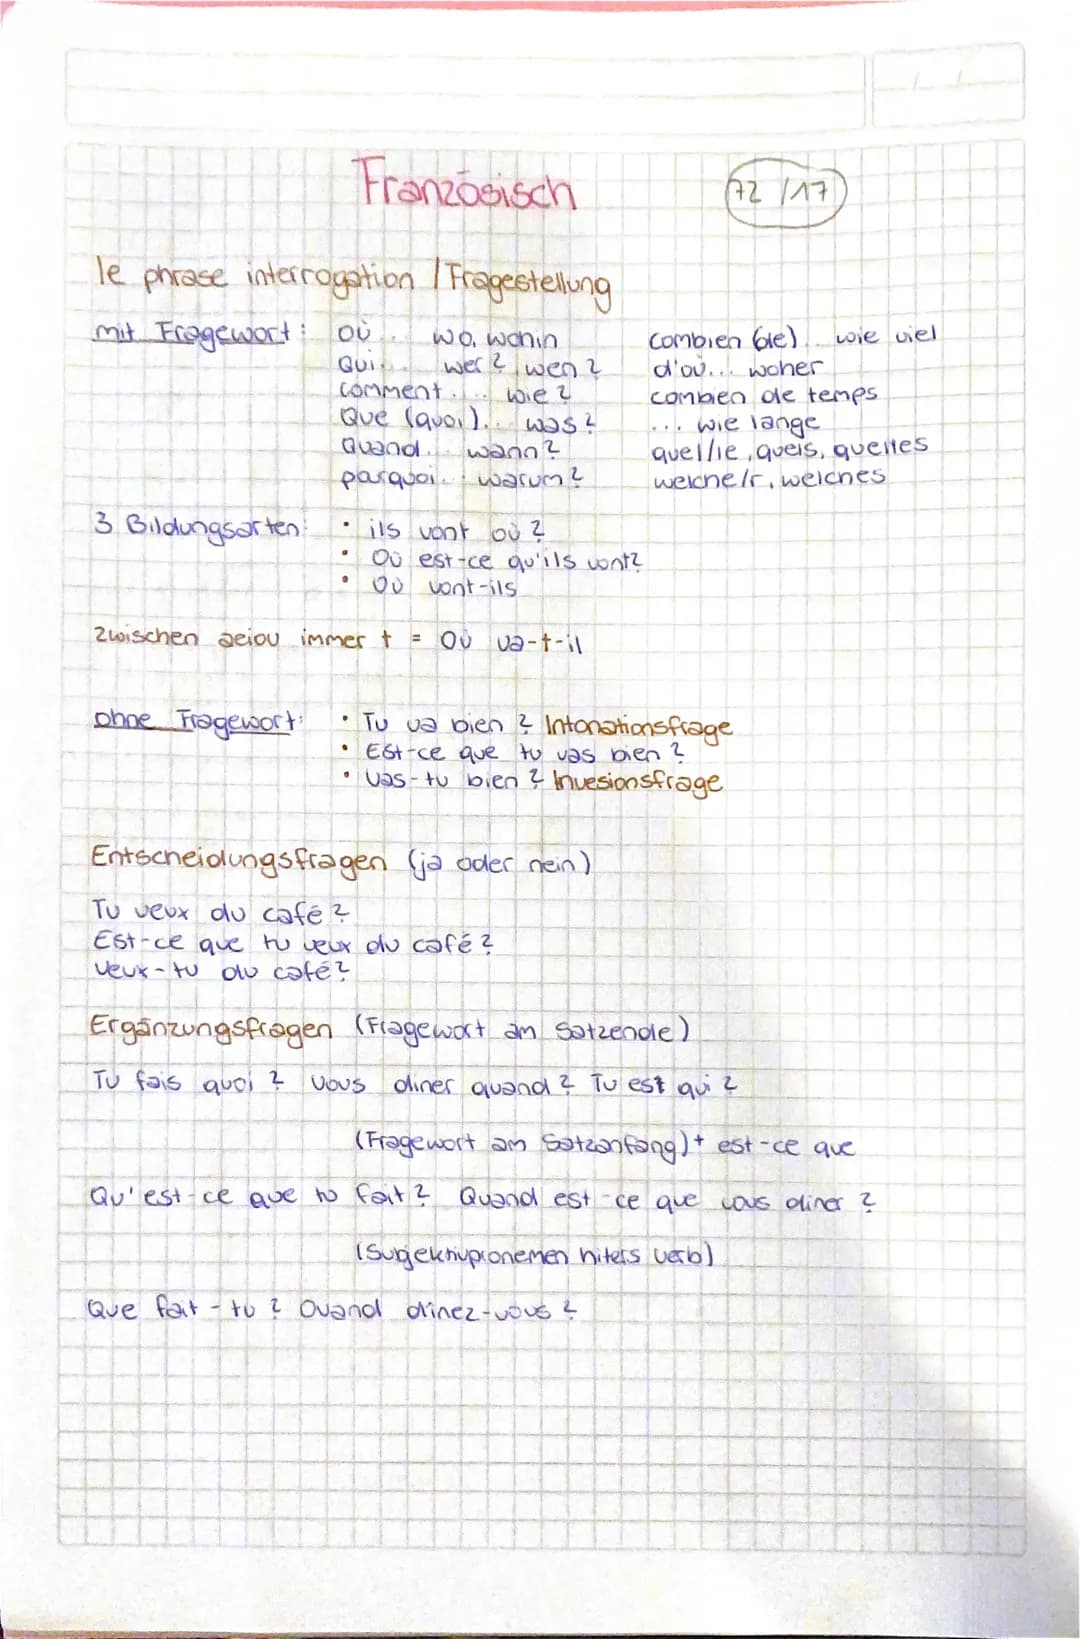 Französisch
72/17
le phrase interrogation / Fragestellung
mit Fragewort: où.. wo, wohin combien (de).. wie viel
Qui... wer? wen? d'où... woher
comment.... wie? combien de temps
Que (quoi)... was? ... wie lange
Quand.. wann? quel/le, quels, quelles
parquoi... warum? welche/r, welches
3 Bildungsarten: • ils vont où?
• Où est-ce qu'ils vont?
• Où vont-ils
zwischen aeiou immer t = Où va-t-il
ohne Fragewort: • Tu va bien? Intonationsfrage
• Est-ce que tu vas bien?
• Vas-tu bien? Invesionsfrage
Entscheidungsfragen (ja oder nein)
Tu veux du café?
Est-ce que tu veux du café?
Veux-tu du café?
Ergänzungsfragen (Fragewort am Satzende)
Tu fais quoi? Vous diner quand? Tu est qui?
(Fragewort am Satzanfang)+ est-ce que
Qu'est-ce que tu fait? Quand est-ce que vous diner?
(Subjektivpronemen hiters Verb)
Que fait-tu? Quand dinez-vous?